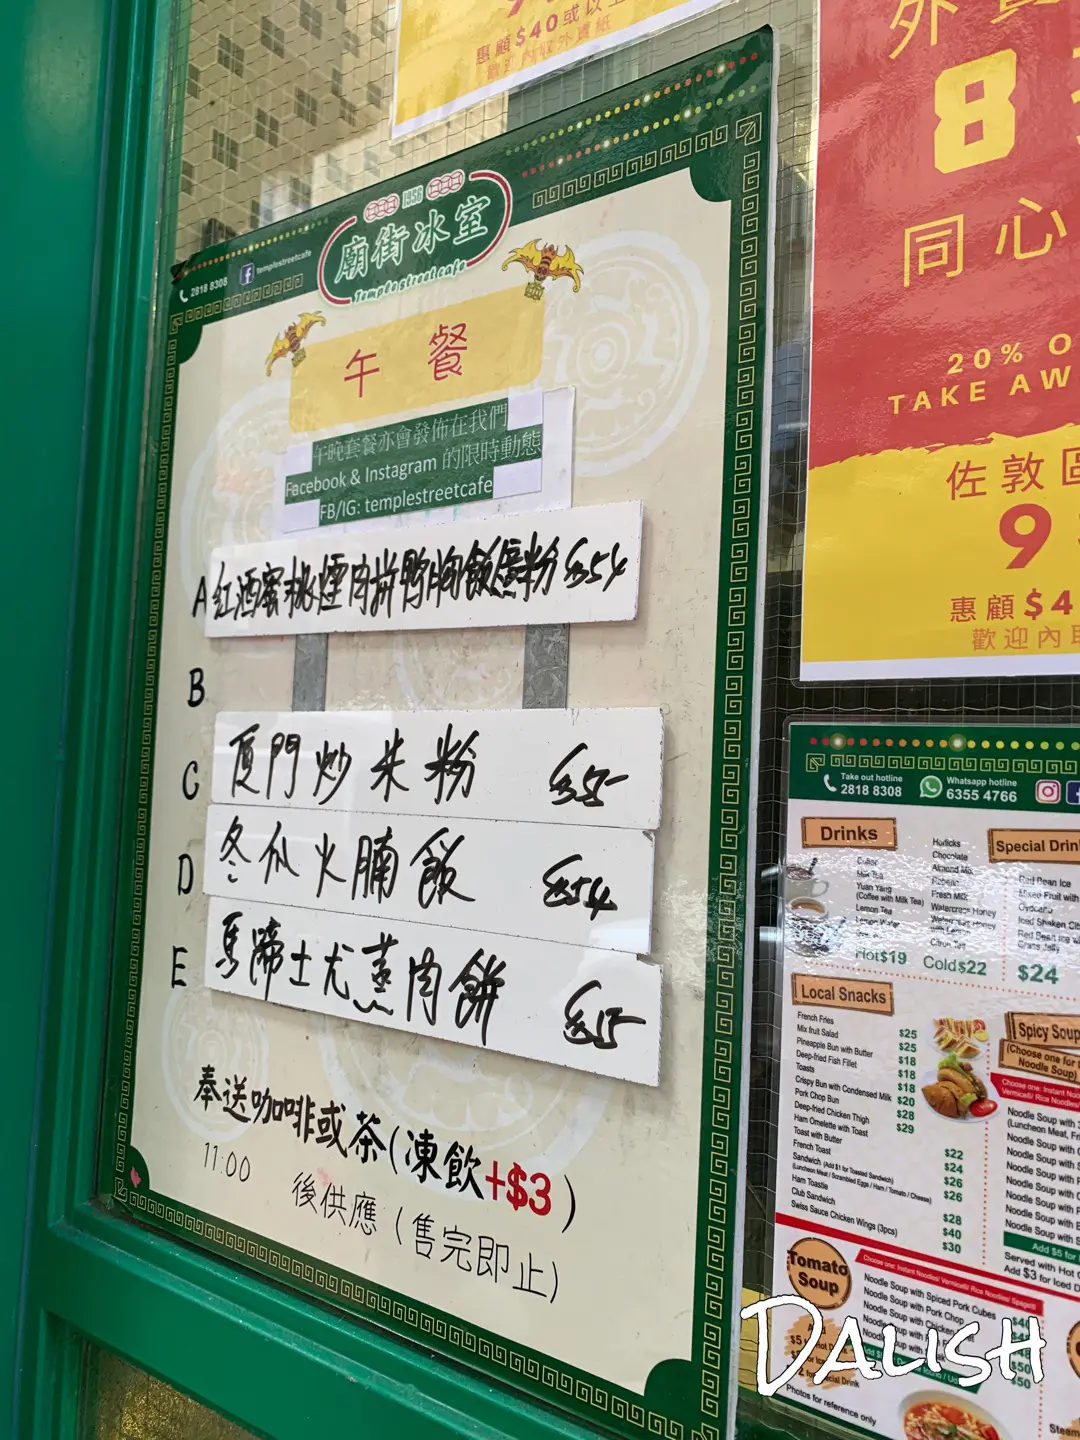 惠顧$40或以上
歡迎內取外賣紙
1956
廟街冰室
Temple street cafe
2818 8308
templestreetcafe
午餐
午晚套餐亦會發佈在我們
Facebook & Instagram 的限時動態
FB/IG: templestreetcafe
A 紅酒蜜桃煙肉拼鴨胸飯
$54
B
C 厦門炒米粉 $55
D 冬瓜火腩飯 $54
E 馬蹄土尤蒸肉餅 $55
奉送咖啡或茶(凍飲+$3)
11:00 後供應 (售完即止)
外賣
8
同心
20% O
TAKE AW
佐敦區
9
惠顧$4
歡迎內取
Take out hotline
2818 8308
Whatsapp hotline
6355 4766
Drinks
Coffee
Milk Tea
Yuan Yang
(Coffee with Milk Tea)
Lemon Tea
Lemon Water
Horlicks
Chocolate
Almond Mix
Fresh Milk
Watercress Honey
Watercress Honey
with Lemon
Citron Tea
Hot$19 Cold$22
Special Drin
Red Bean Ice
Mixed Fruit with
Iced Shaken Cit
Red Bean Ice w
Grass Jelly
$24
Local Snacks
French Fries $25
Mix fruit Salad $25
Pineapple Bun with Butter $18
Deep-fried Fish Fillet $18
Toasts $18
Crispy Bun with Condensed Milk $20
Pork Chop Bun $28
Deep-fried Chicken Thigh $29
Ham Omelette with Toast
Toast with Butter $22
French Toast $24
Sandwich (Add $1 for Toasted Sandwich) $26
(Luncheon Meat / Scrambled Eggs / Ham / Tomato / Cheese) $26
Ham Toastie
Club Sandwich $28
Swiss Sauce Chicken Wings (3pcs) $40
$30
Spicy Soup
(Choose one for
Noodle Soup)
Choose one: Instant No
Vermicelli/ Rice Noodles/
Noodle Soup with
(Luncheon Meat, Fr
Noodle Soup with
Noodle Soup with
Noodle Soup with
Noodle Soup with
Noodle Soup with
Noodle Soup with
Noodle Soup with
Add $5 for
Served with Hot
Add $3 for Iced D
Tomato
Soup
Choose one: Instant Noodles/ Vermicelli/ Rice Noodles/ Spaghetti
Noodle Soup with Spiced Pork Cubes
Noodle Soup with Pork Chop
Noodle Soup with Chicken
$50
$50
Photos for reference only
DALISH